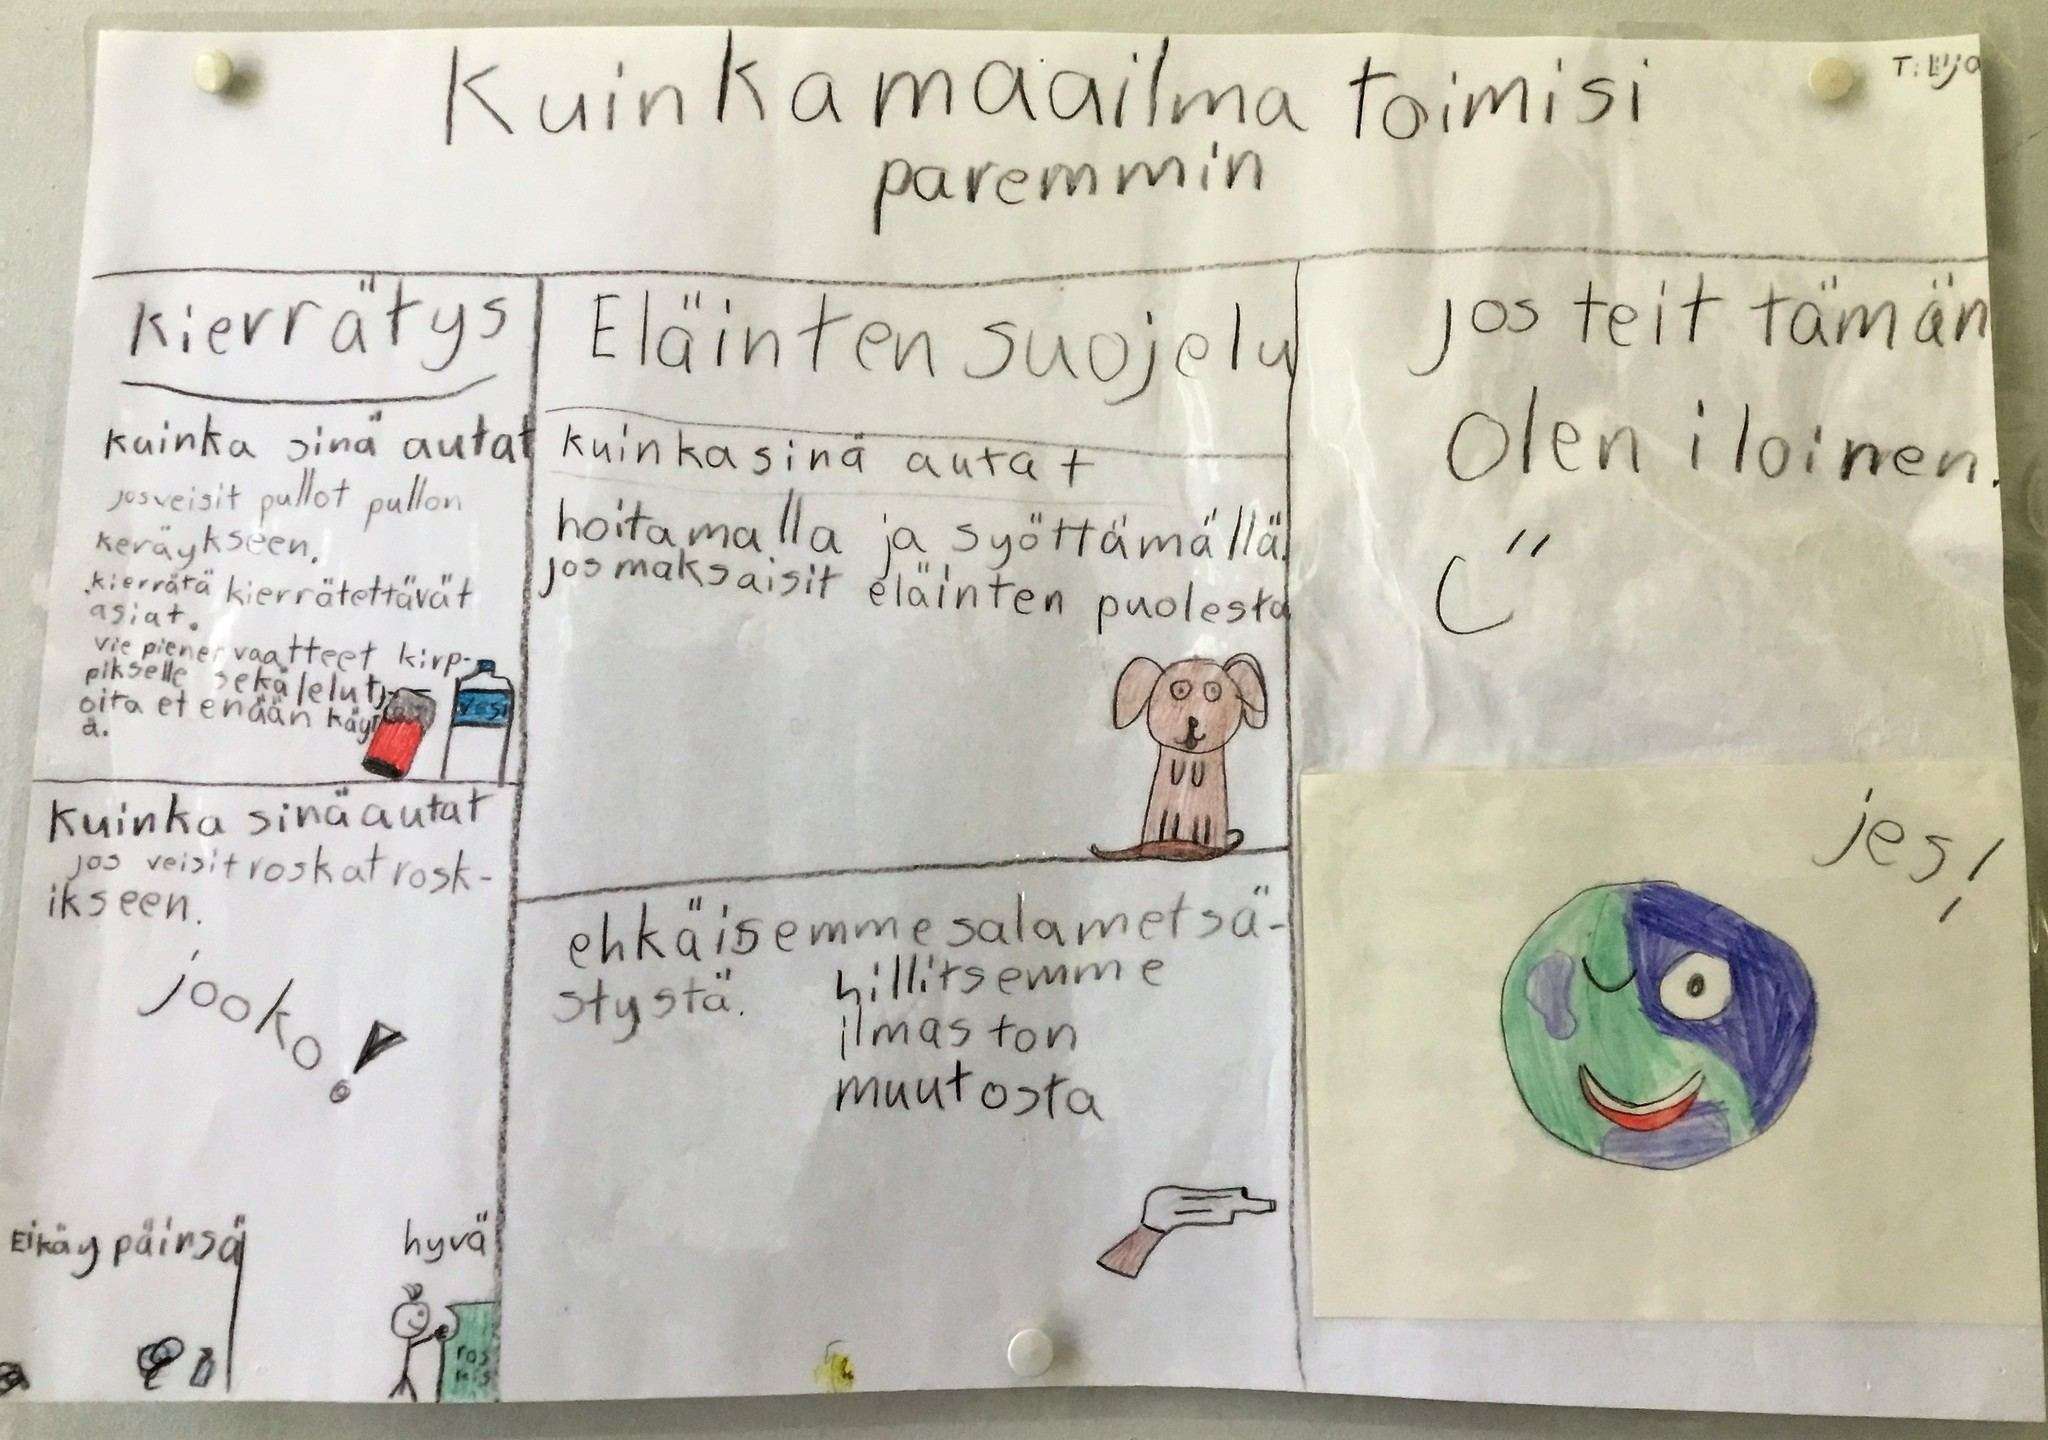 Kuinka maailma toimisi
paremmin
T: Lilja
Kierrätys
kuinka sinä autat
jos veisit pullot pullon
keräykseen.
kierrätä kierrätettävät
asiat.
vie pienet vaatteet kirp-
pikselle sekä lelut j
oita et enään käyt
ä.
VESI
Kuinka sinä autat
jos veisit roskat rosk-
ikseen.
jooko!
Ei käy päinsä
hyvä
ros
kis
Eläinten suojelu
kuinka sinä autat
hoitamalla ja syöttämällä.
jos maksaisit eläinten puolesta
ehkäisemme salametsä-
stystä.
hillitsemme
ilmaston
muutosta
jos teit tämän
olen iloinen.
jes!